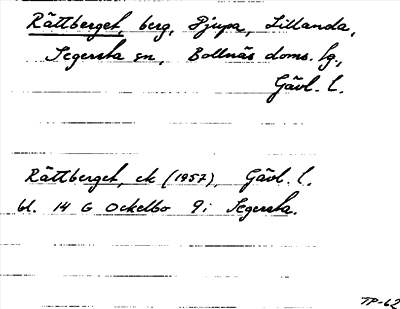 Rättberget, berg, Djupa, Lillanda,
Segersta sn, Bollnäs doms. lg,
Gävl. l.
Rättberget, ek (1957), Gävl. l.
bl. 14 G Ockelbo 9i Segersta.
TP-62